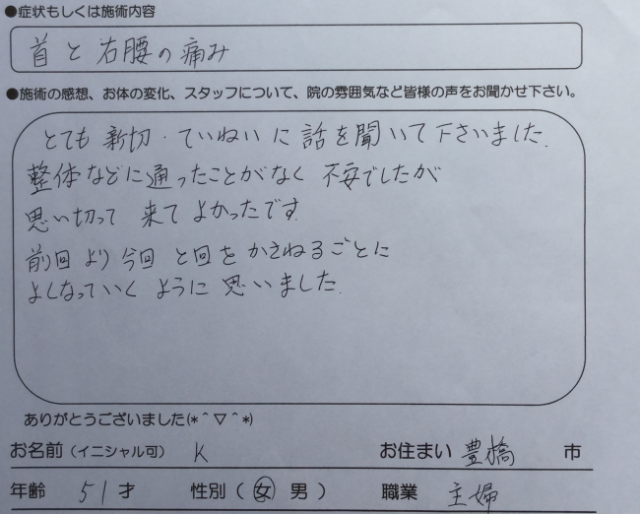 ●症状もしくは施術内容
首と右腰の痛み
●施術の感想、お体の変化、スタッフについて、院の雰囲気など皆様の声をお聞かせ下さい。
とても新切・ていねいに話を聞いて下さいました.
整体などに通ったことがなく 不安でしたが
思い切って 来て よかったです.
前回より今回 と回を かさねるごとに
よくなっていく ように 思いました.
ありがとうございました(*＾▽＾*)
お名前(イニシャル可) K お住まい 豊橋 市
年齢 51才 性別( 女 男 ) 職業 主婦